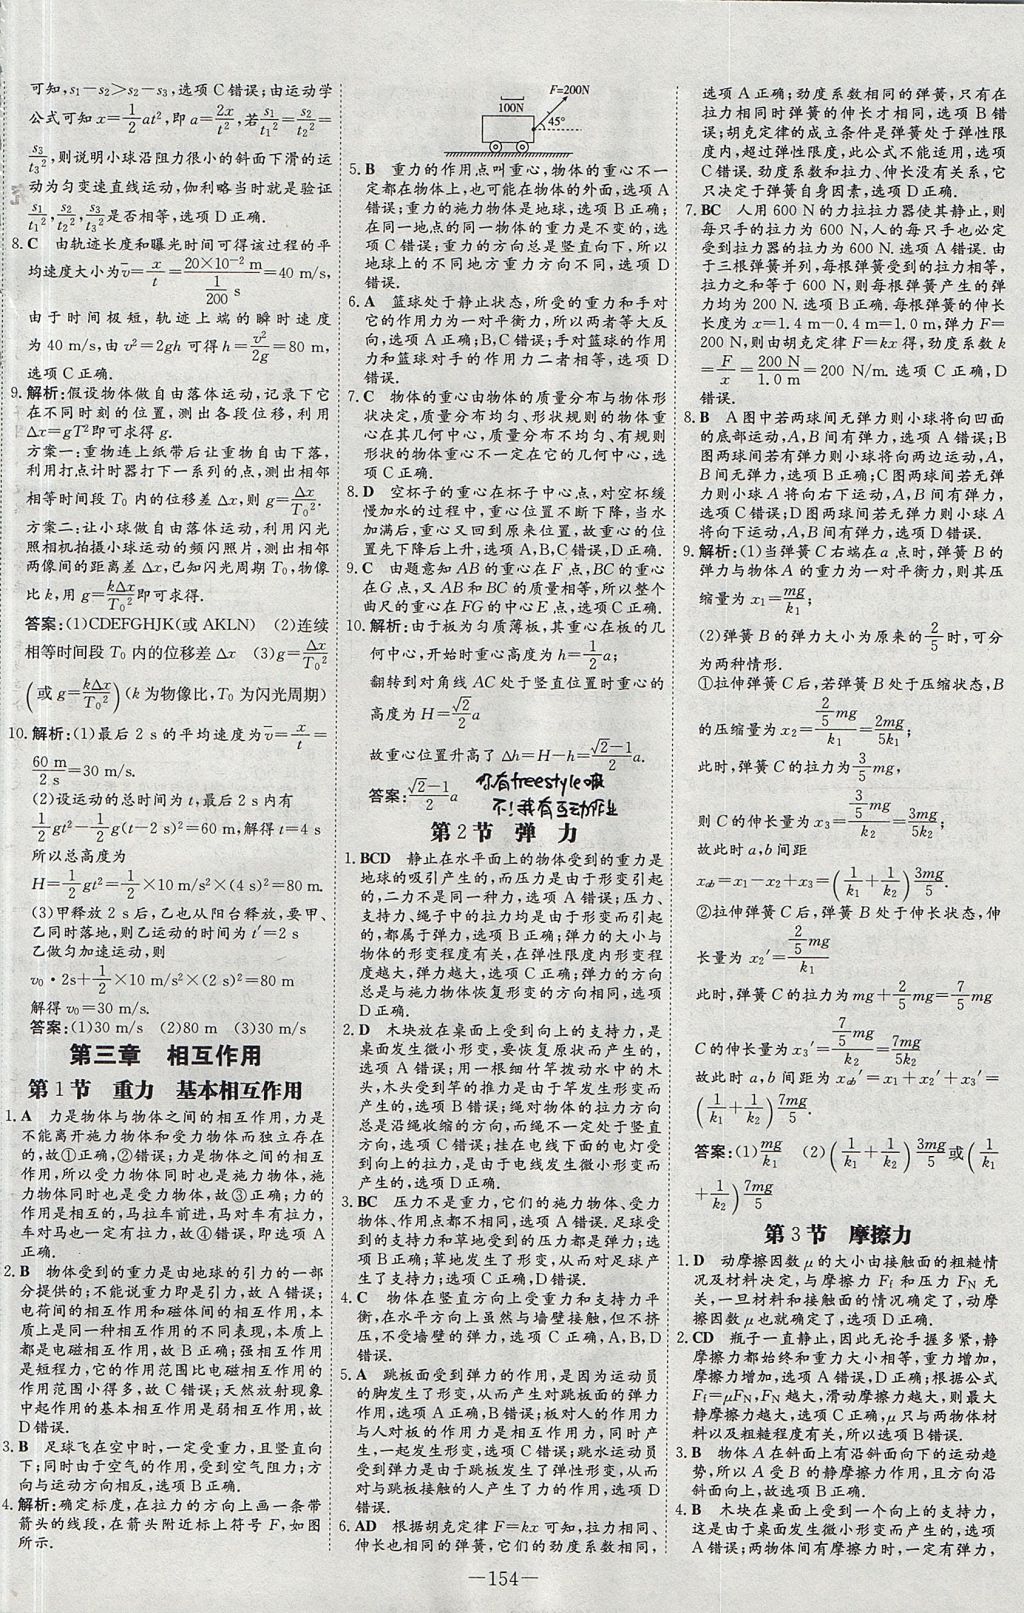 可知,s₁-s₂>s₂-s₃,选项C错误;由运动学
公式可知x=1/2at²,即a=2x/t²,若s₁/t₁²=s₂/t₂²=
s₃/t₃²,则说明小球沿阻力很小的斜面下滑的运
动为匀变速直线运动,伽利略当时就是验证
s₁/t₁²,s₂/t₂²,s₃/t₃²是否相等,选项D正确.
8.C 由轨迹长度和曝光时间可得该过程的平
均速度大小为v̄=x/t=(20×10⁻² m)/(1/200 s)=40 m/s,
由于时间极短,轨迹上端的瞬时速度
为40 m/s,由v²=2gh可得h=v²/2g=80 m,
选项C正确.
9.解析:假设物体做自由落体运动,记录下它
在不同时刻的位置,测出各段位移,利用
Δx=gT²即可求得g.
方案一:重物连上纸带后让重物自由下落,
利用打点计时器打下一系列的点,测出相邻
相等时间段T₀内的位移差Δx,则g=Δx/T₀².
方案二:让小球做自由落体运动,利用闪光
照相机拍摄小球运动的频闪照片,测出相邻
两像间的距离差Δx,已知闪光周期T₀,物像
比k,用g=kΔx/T₀²即可求得.
答案:(1)CDEFGHJK(或AKLN) (2)连续
相等时间段T₀内的位移差Δx (3)g=Δx/T₀²
(或g=kΔx/T₀²)(k为物像比,T₀为闪光周期)
10.解析:(1)最后2 s的平均速度为v̄=x/t=
60 m/2 s=30 m/s.
(2)设运动的总时间为t,最后2 s内有
1/2gt²-1/2g(t-2 s)²=60 m,解得t=4 s
所以总高度为
H=1/2gt²=1/2×10 m/s²×(4 s)²=80 m.
(3)甲释放2 s后,乙也从阳台释放,要甲、
乙同时落地,则乙运动的时间为t′=2 s
乙做匀加速运动,则
v₀·2s+1/2×10 m/s²×(2 s)²=80 m
解得v₀=30 m/s.
答案:(1)30 m/s (2)80 m (3)30 m/s
第三章 相互作用
第1节 重力 基本相互作用
1.A 力是物体与物体之间的相互作用,力是
不能离开施力物体和受力物体而独立存在
的,故①正确,②错误;力是物体之间的相互
作用,所以受力物体同时也是施力物体,施
力物体同时也是受力物体,故③正确;力的
作用是相互的,马拉车前进,马对车有拉力,
车对马也一定有拉力,故④错误,即选项A
正确.
2.B 物体受到的重力是由地球的引力的一部
分提供的;不能说重力即是引力,故A错误;
电荷间的相互作用和磁体间的相互作用,本
质上是同一种相互作用的不同表现,本质上
都是电磁相互作用,故B正确;强相互作用
是短程力,它的作用范围比电磁相互作用的
作用范围小得多,故C错误;天然放射现象
中起作用的基本相互作用是弱相互作用,故
D错误.
3.B 足球飞在空中时,一定受重力,且竖直向
下;同时由于空气的作用,受到空气阻力;方
向与运动方向相反,选项B正确.
4.解析:确定标度,在拉力的方向上画一条带
箭头的线段,在箭头附近标上符号F,如图
所示.
100N F=200N
45°
5.B 重力的作用点叫重心,物体的重心不一
定都在物体上,也可能在物体的外面,选项A
错误;重力的施力物体是地球,选项B正确;
在同一地点的同一物体的重力是不变的,选
项C错误;重力的方向总是竖直向下,所以
地球上的不同地方重力方向不同,选项D
错误.
6.A 篮球处于静止状态,所受的重力和手对
它的作用力为一对平衡力,所以两者等大反
向,选项A正确;B,C错误;手对篮球的作用
力和篮球对手的作用力二者相等,选项D
错误.
7.C 物体的重心由物体的质量分布与物体形
状决定,质量分布均匀、形状规则的物体重
心在其几何中心,质量分布不均匀、有规则
形状的物体重心不一定在它的几何中心,选
项C正确.
8.D 空杯子的重心在杯子中心点,对空杯缓
慢加水的过程中,重心位置不断下降,当水
加满后,重心又回到原来位置,故重心的位
置先下降后上升,选项A,B,C错误,D正确.
9.C 由题意知AB的重心在F点,BC的重心
在G点,又AB和BC的质量相等,所以整个
曲尺的重心在FG的中心E点,选项C正确.
10.解析:由于板为匀质薄板,其重心在板的几
何中心,开始时重心高度为h=1/2a;
翻转到对角线AC处于竖直位置时重心的
高度为H=√2/2a
故重心位置升高了Δh=H-h=(√2-1)/2a.
答案:(√2-1)/2a
你有freestyle嘛
不!我有互动作业
第2节 弹力
1.BCD 静止在水平面上的物体受到的重力是
地球的吸引产生的,而压力是由于形变引起
的,二力不是同一种力,选项A错误;压力、
支持力、绳子中的拉力均是由于形变而引起
的,都属于弹力,选项B正确;弹力的大小与
物体的形变程度有关,在弹性限度内形变程
度越大,弹力越大,选项C正确;弹力的方向
总是与施力物体恢复形变的方向相同,选项
D正确.
2.D 木块放在桌面上受到向上的支持力,是
桌面发生微小形变,要恢复原状而产生的,
选项A错误;用一根细竹竿拨动水中的木
头,木头受到竿的推力是由于竿发生形变而
产生的,选项B错误;绳对物体的拉力方向
总是沿绳收缩的方向,而绳不一定处于竖直
方向,选项C错误;挂在电线下面的电灯受
到向上的拉力,是由于电线发生微小形变而
产生的,选项D正确.
3.BC 压力不是重力,它们的施力物体、受力
物体、作用点都不相同,选项A错误.足球受
到的支持力和草地受到的压力都是弹力;选
项B正确;草地发生了形变,从而对足球产
生了支持力;选项C正确,D错误.
4.C 物体在竖直方向上受重力和支持力平
衡,在水平方向上虽然与墙壁接触,但不挤
压,不受墙壁的弹力,选项C正确,A,B,D
错误.
5.A 跳板面受到弹力的作用,是因为运动员
的脚发生了形变,从而产生对跳板面的弹力
作用,选项A正确,B错误;板对人的作用力
与人对板的作用力是相互作用力,同时产
生,一起发生形变,选项C错误;跳水运动员
受到弹力的作用,是因为跳板发生了形变,从而
对与跳板接触的人产生了力的作用,选项D
错误.
6.AD 根据胡克定律F=kx可知,拉力相同、
伸长也相同的弹簧,它们的劲度系数相同,
选项A正确;劲度系数相同的弹簧,只有在
拉力相同时弹簧的伸长才相同,选项B错
误;胡克定律的成立条件是弹簧处于弹性限
度内,超过弹性限度,此公式不能适用,选项
C错误.劲度系数和拉力、伸长没有关系,它
只决定于弹簧自身因素,选项D正确.
7.BC 人用600 N的力拉拉力器使其静止,则
每只手的拉力为600 N,人的每只手也必定
受到拉力器的拉力为600 N.选项A错误.由
于三根弹簧并列,每根弹簧受到的拉力相等,
拉力之和等于600 N,则每根弹簧产生的弹
力均为200 N.选项B正确.每根弹簧的伸长
长度为x=1.4 m-0.4 m=1.0 m,弹力F=
200 N,则由胡克定律F=kx得,劲度系数k
=F/x=200 N/1.0 m=200 N/m.选项C正确,D
错误.
8.B A图中若两球间无弹力则小球将向凹面
的底部运动,A,B间有弹力,选项A错误;B
图两球间若有弹力则小球将向两边运动,A,
B间无弹力,选项B正确;C图两球间若无弹
力则小球A将向右下运动,A,B间有弹力,
选项C错误;D图两球间若无弹力则小球A
将向下运动,A,B间有弹力,选项D错误.
9.解析:(1)当弹簧C右端在a点时,弹簧B的
弹力与物体A的重力为一对平衡力,则其压
缩量为x₁=mg/k₁;
(2)弹簧B的弹力大小为原来的2/5时,可分
为两种情形.
①拉伸弹簧C后,若弹簧B处于压缩状态,B
的压缩量为x₂=(2/5mg)/k₁=2mg/5k₁;
此时,弹簧C的拉力为3/5mg,
则C的伸长量为x₃=(3/5mg)/k₂=3mg/5k₂;
故此时a,b间距
xab=x₁-x₂+x₃=(1/k₁+1/k₂)3mg/5.
②拉伸弹簧C后,弹簧B处于伸长状态,伸
长量为x₂′=(2/5mg)/k₁
此时,弹簧C的拉力为mg+2/5mg=7/5mg
C的伸长量为x₃′=(7/5mg)/k₂=7mg/5k₂
故此时a,b间距为xab′=x₁+x₂′+x₃′=
(1/k₁+1/k₂)7mg/5.
答案:(1)mg/k₁ (2)(1/k₁+1/k₂)3mg/5或(1/k₁
+1/k₂)7mg/5
第3节 摩擦力
1.D 动摩擦因数μ的大小由接触面的粗糙情
况及材料决定,与摩擦力Ff和压力FN无
关,一旦材料和接触面的情况确定了,动摩
擦因数μ也就确定了,选项D正确.
2.CD 瓶子一直静止,因此无论手握多紧,静
摩擦力都始终和重力大小相等,重力增加,
摩擦力增加,选项A错误,D正确;根据公式
Ff=μFN,FN越大,滑动摩擦力越大,则最大
静摩擦力越大,选项C正确,μ只与两物体材
料以及粗糙程度有关,所以选项B错误.
3.B 物体A在斜面上有沿斜面向下的运动趋
势,所以A受B的静摩擦力作用,且方向沿
斜面向上,故选项B正确.
4.B 木块在桌面上受到一个向上的支持力,
这是由于桌面发生微小形变而产生的,选项
A错误;两物体间有摩擦力,一定有弹力,
—154—